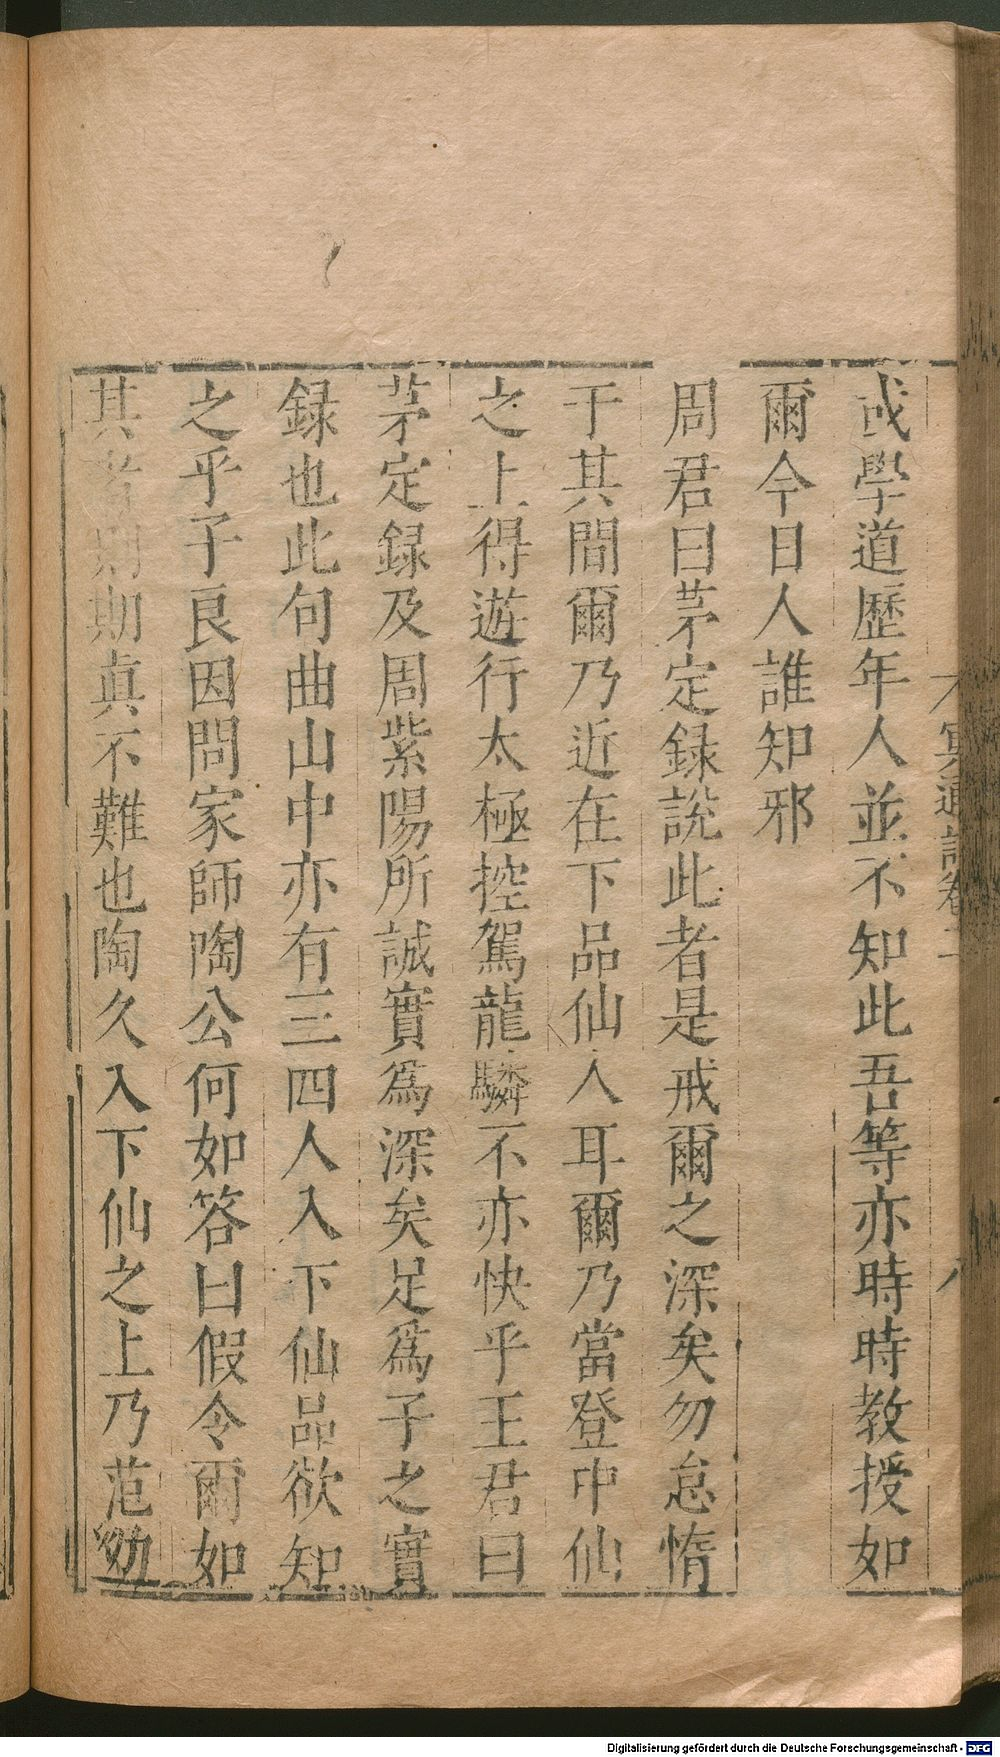 或學道歷年人並不知此吾等亦時時教授如
爾今日人誰知邪
周君曰茅定録說此者是戒爾之深矣勿怠惰
于其間爾乃近在下品仙人耳爾乃當登中仙
之上得遊行太極控駕龍驎不亦快乎王君曰
茅定録及周紫陽所誠實爲深矣足爲子之實
録也此句曲山中亦有三四人入下仙品欲知
之乎子良因問家師陶公何如答曰假令爾如
其者則期眞不難也陶久入下仙之上乃范幼
冥通記卷二
八
Digitalisierung gefördert durch die Deutsche Forschungsgemeinschaft - DFG